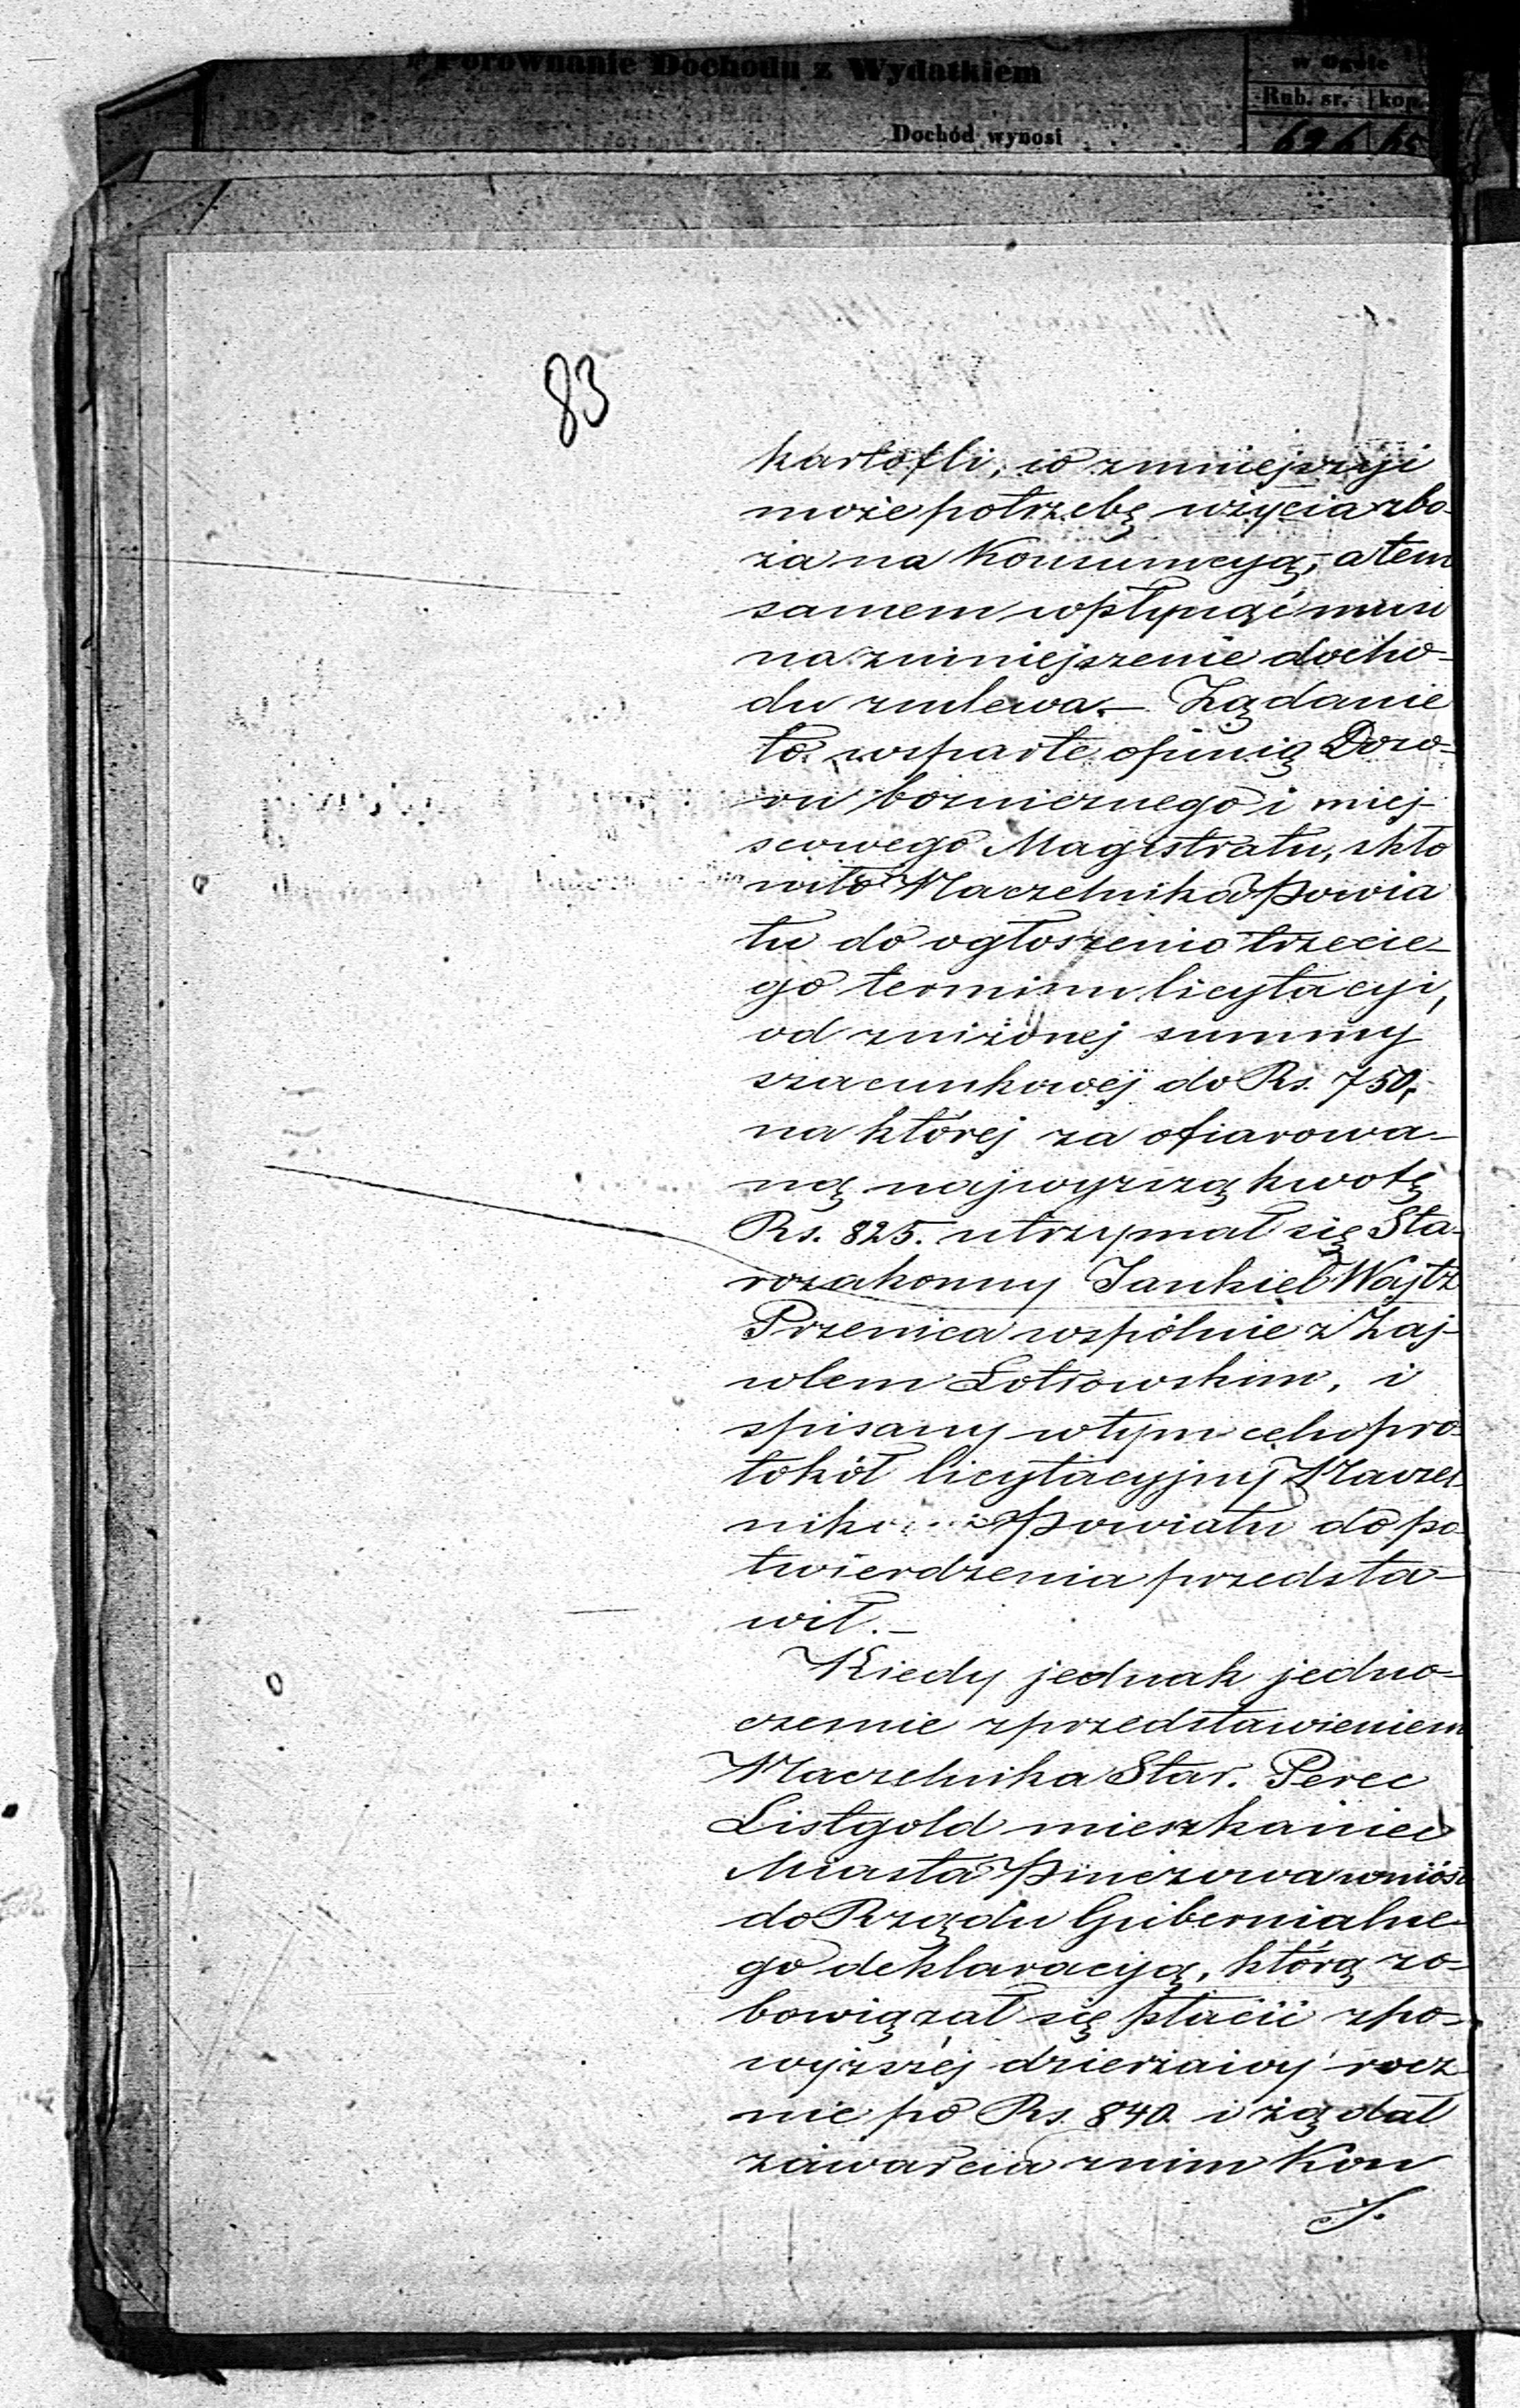 Porównanie Dochodu z Wydatkiem
w Ogóle
Rub. sr. kop.
Dochód wynosi
626 65
83
kartofli, co zmniejszyć
może potrzebę użycia zbo-
ża na Konsumcyą, a tem
samem wpłynąć musi
na zmniejszenie docho-
du z mlewa. – Żądanie
to wsparte opinią Dozo-
ru bożniczego i miej-
scowego Magistratu, skło
niło Naczelnika Powia
tu do ogłoszenia trzecie-
go terminu licytacyi,
od zniżonej summy
szacunkowej do Rs. 750,
na której za ofiarowa-
ną najwyższą kwotę
Rs. 825. utrzymał się Sta-
rozakonny Jankiel Wajtz
Przenica wspólnie z Zaj-
wlem Lotrowskim, i
spisany w tym celu pro-
tokół licytacyjny Naczel-
nik Powiatu do po-
twierdzenia przedsta-
wił. –
Kiedy jednak jedno-
czesnie z przedstawieniem
Naczelnika Star. Perec
Listgold mieszkaniec
Miasta Pinczowa wniósł
do Rządu Gubernialne-
go deklaracyją, którą zo-
bowiązał się płacić z po-
wyższej dzierżawy rocz
nie po Rs. 840 i żądał
zawarcia z nim Kon